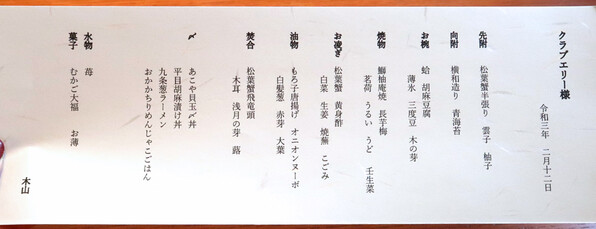 クラブエリー様
令和三年 二月十二日
先附 松葉蟹半張り 雲子 柚子
向附 横和造り 青海苔
お椀 蛤 胡麻豆腐
薄氷 三度豆 木の芽
焼物 鰤柚庵焼 長芋梅
茗荷 うるい うど 壬生菜
お凌ぎ 松葉蟹 黄身酢
白菜 生姜 焼蕪 こごみ
油物 もろ子唐揚げ オニオンヌーボ
白髪葱 赤芽 大葉
焚合 松葉蟹飛竜頭
木耳 浅月の芽 蕗
〆 あこや貝玉〆丼
平目胡麻漬け丼
九条葱ラーメン
おかかちりめんじゃこごはん
水物 苺
菓子 むかご大福 お薄
木山